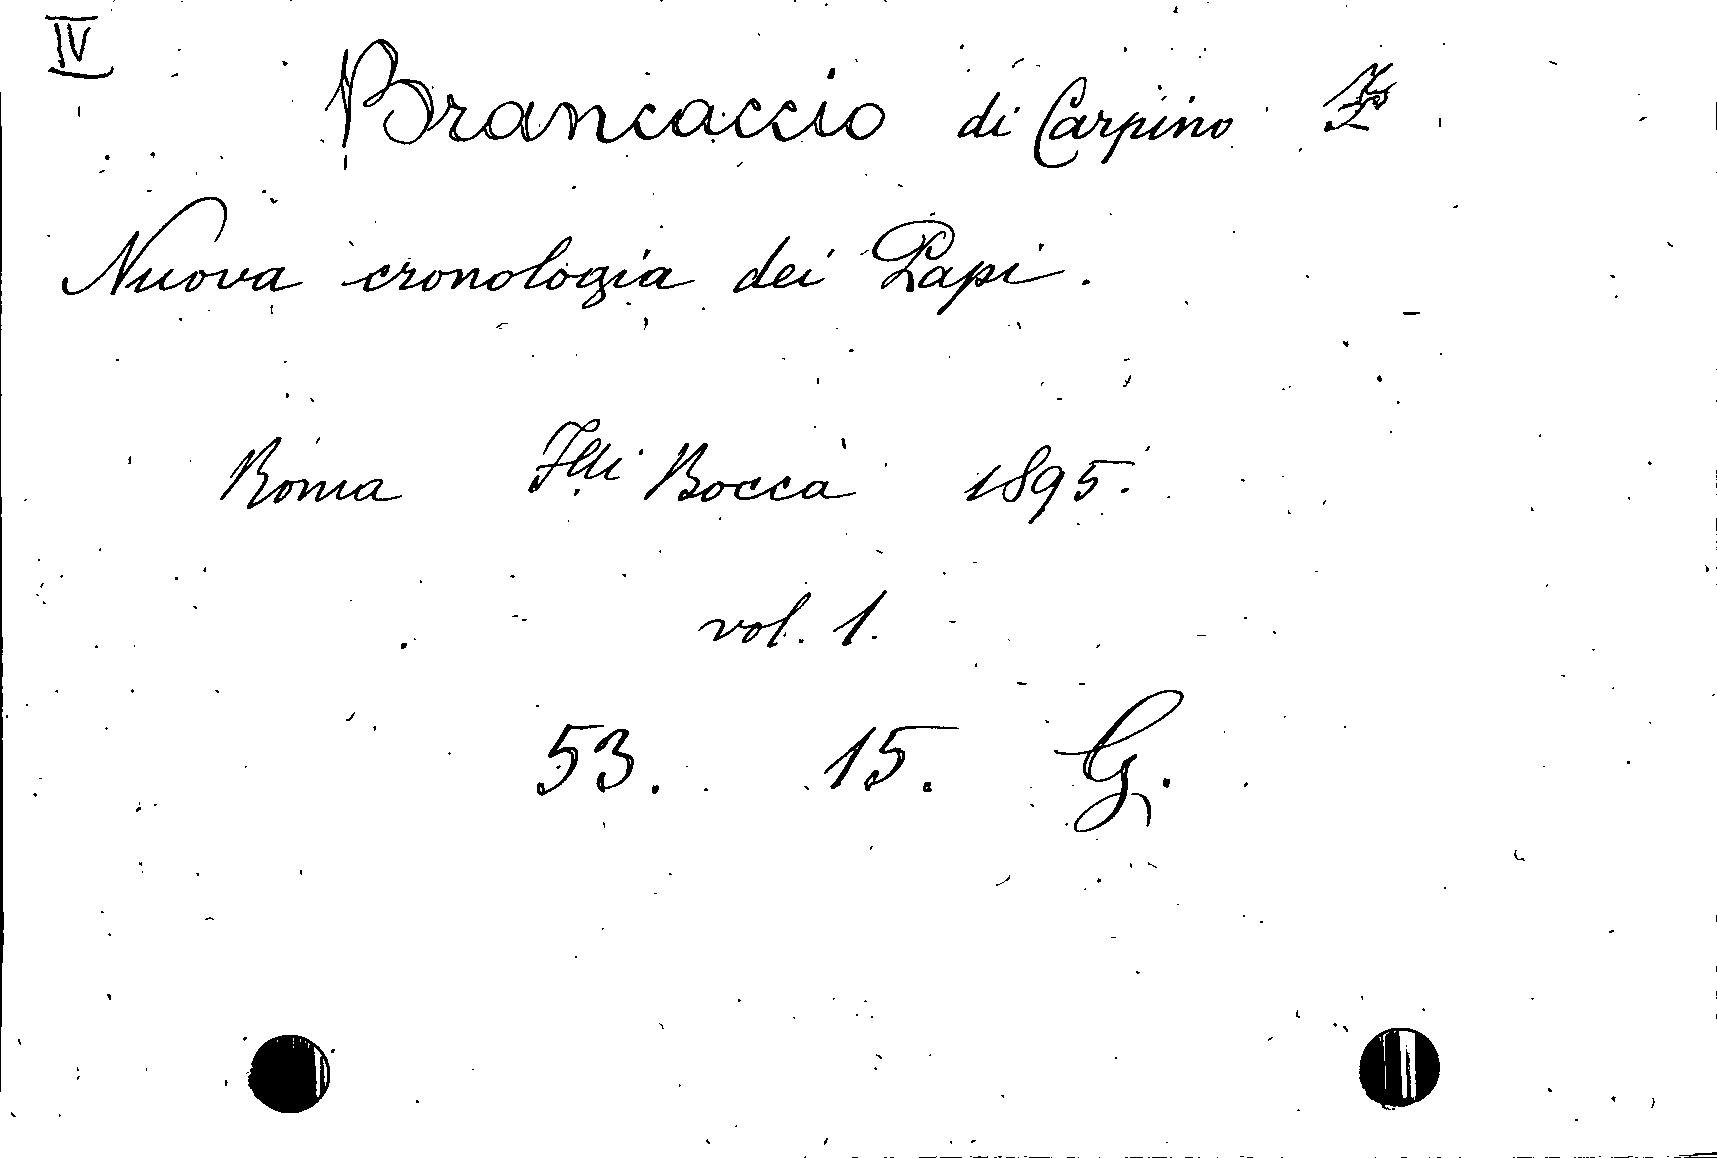 IV
Brancaccio di Carpino F
Nuova cronologia dei Papi.
Roma Flli Bocca 1895.
vol. 1.
53. 15. G.